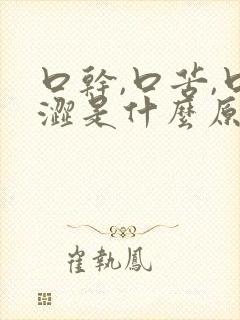 口幹,口苦,口
澀是什麼原
崔執鳳